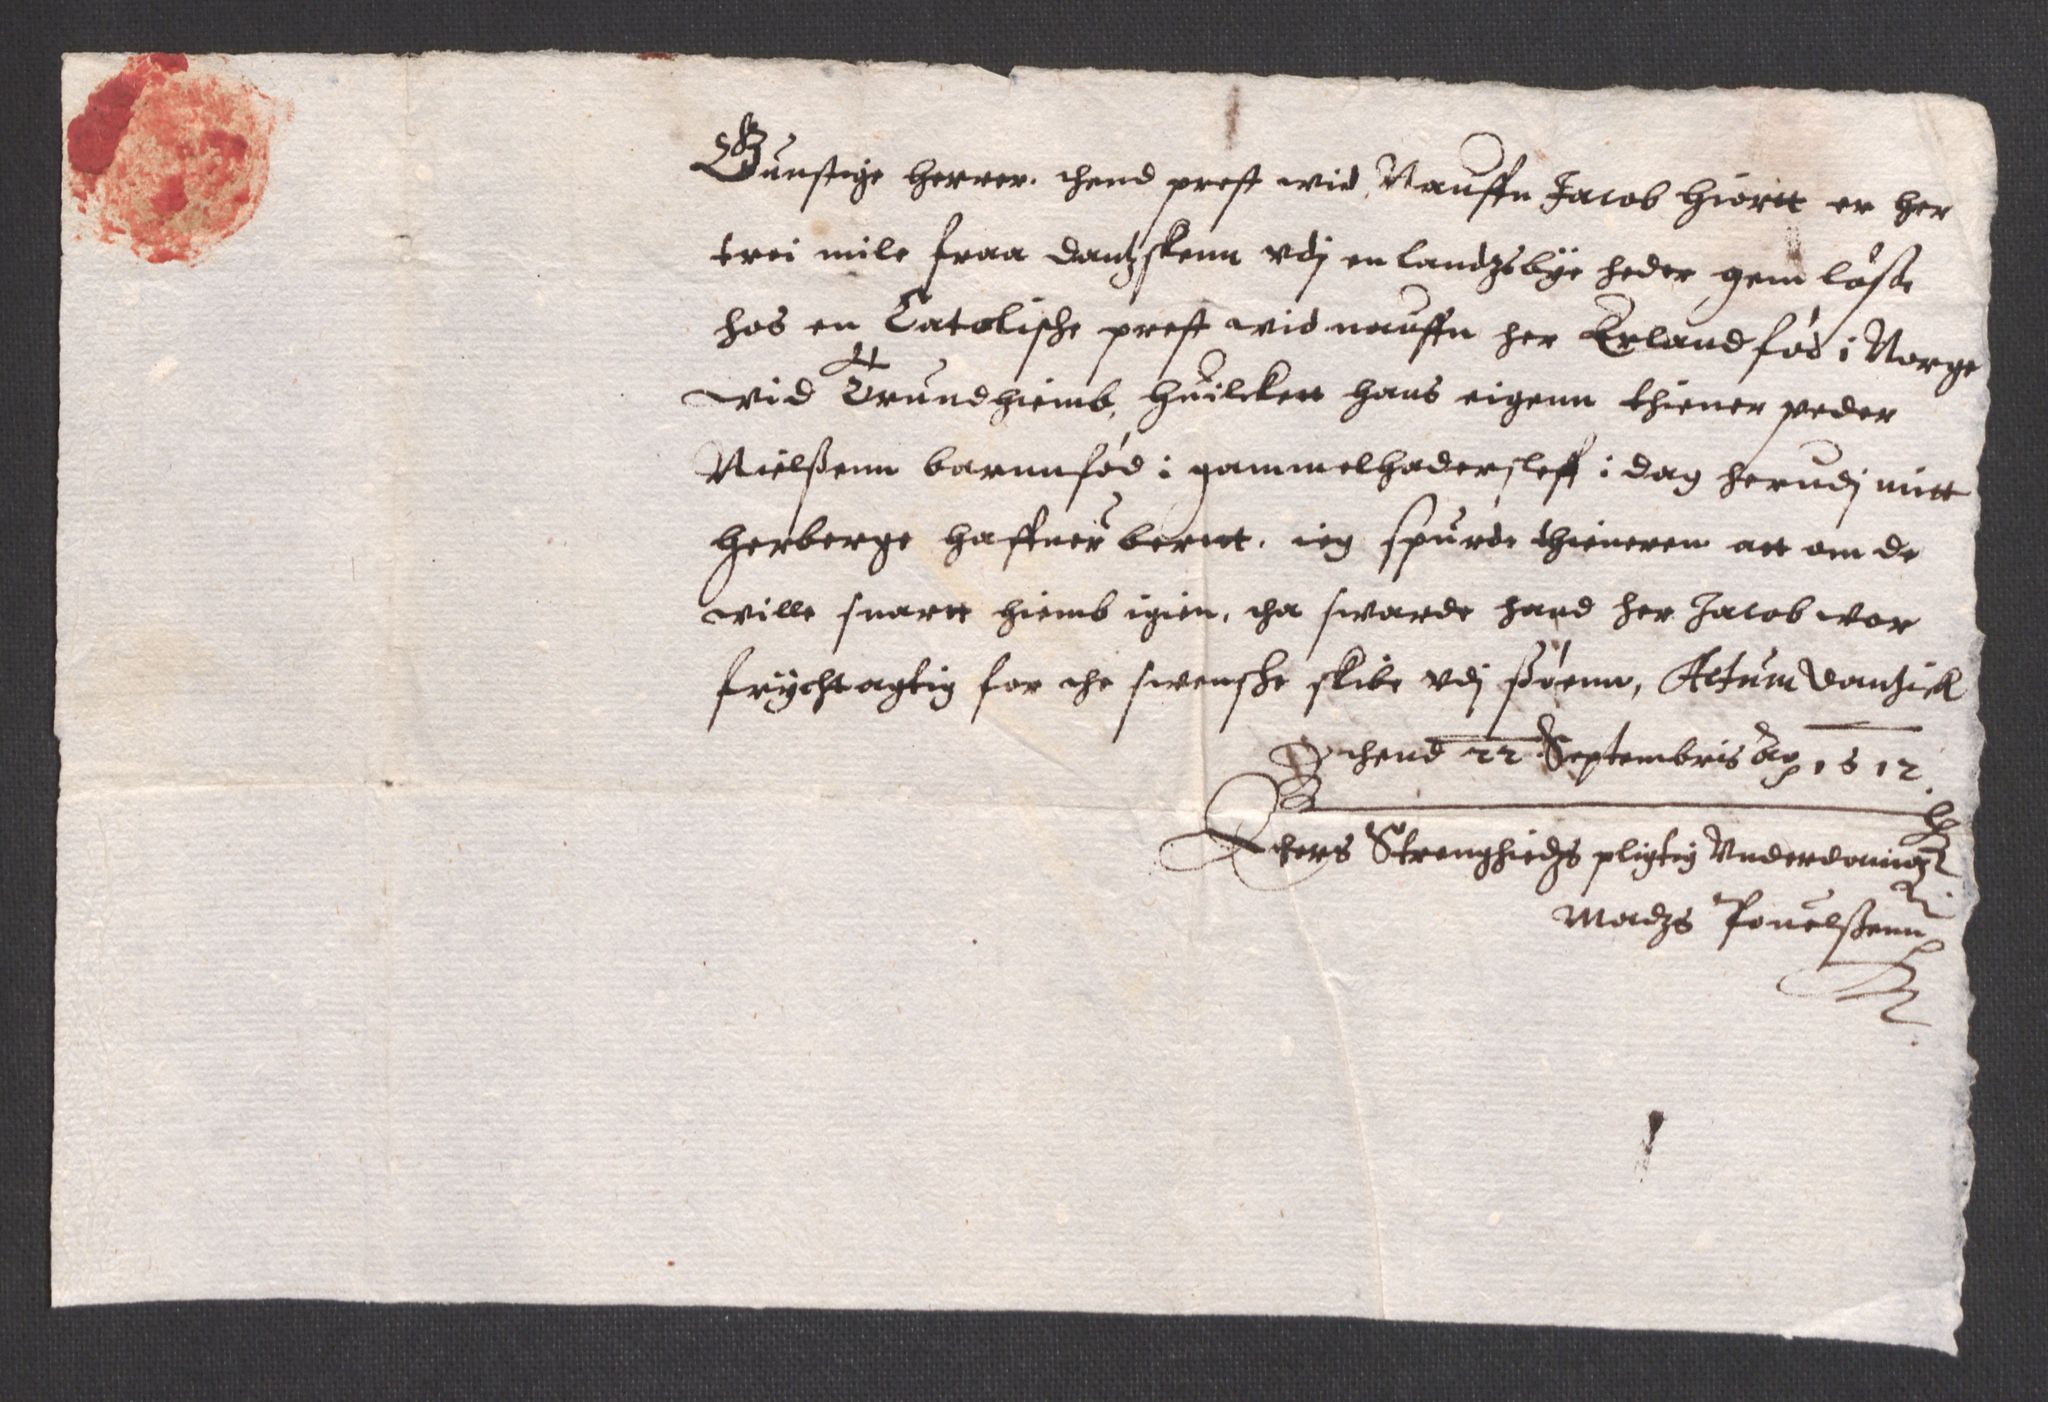 Gunstige herrer. thend prest wid Nauffn Jacob Hiortt er her
trei mile fraa Dantzskenn vdj en landzsbÿe heder gem løsse
hos en Catolische prest wid nauffn her Erland fød i Norge
wid Trundhiemb, huilckett hans eigenn thiener peder
Nielssenn barnnfød i gammelhadersleff i dag herudj mitt
herberge haffuer berett. ieg spurde thieneren att om de
wille snartt hiemb igien, tha swarde hand her Jacob wor
frÿchtagtig for the swenske skibe vdj siøenn, Actum Dantzick
thend 22 Septembris Ao 1612.
Ethers Strenghiedzs pligtig Vnderdanigst
Madzs Pouelssenn